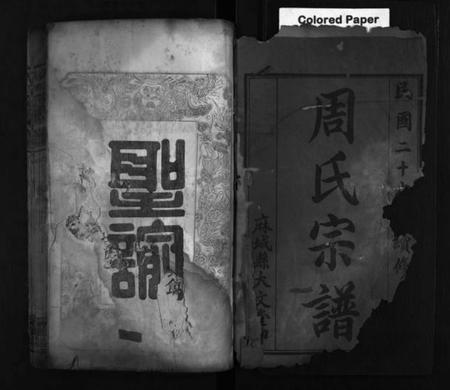 Colored Paper
民國二十
續修
周氏宗譜
麻城縣大文堂印
聖諭